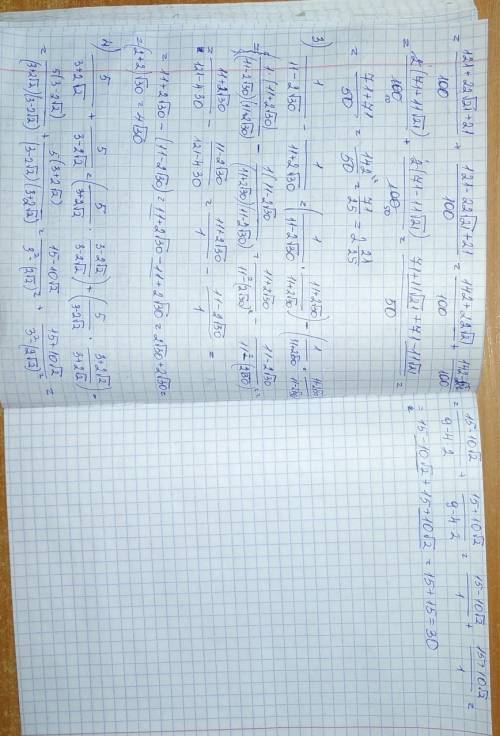 = (121+22√21+21)/100 + (121-22√21+21)/100 = (142+22√21)/100 + (142-22√21)/100 =
= 2(71+11√21)/100 + 2(71-11√21)/100 = (71+11√21+71-11√21)/50 =
= (71+71)/50 = 142/50 = 71/25 = 2 21/25
3) 1/(11-2√30) - 1/(11+2√30) = (1/(11-2√30) · (11+2√30)/(11+2√30)) - (1/(11+2√30) · (11-2√30)/(11-2√30)) =
= 1(11+2√30)/((11-2√30)(11+2√30)) - 1(11-2√30)/((11+2√30)(11-2√30)) = (11+2√30)/(11²-(2√30)²) - (11-2√30)/(11²-(2√30)²) =
= (11+2√30)/(121-4·30) - (11-2√30)/(121-4·30) = (11+2√30)/1 - (11-2√30)/1 =
= 11+2√30 - (11-2√30) = 11+2√30-11+2√30 = 2√30+2√30 =
= (2+2)√30 = 4√30
4) 5/(3+2√2) + 5/(3-2√2) = (5/(3+2√2) · (3-2√2)/(3-2√2)) + (5/(3-2√2) · (3+2√2)/(3+2√2)) =
= 5(3-2√2)/((3+2√2)(3-2√2)) + 5(3+2√2)/((3-2√2)(3+2√2)) = (15-10√2)/(3²-(2√2)²) + (15+10√2)/(3²-(2√2)²) =
= (15-10√2)/(9-4·2) + (15+10√2)/(9-4·2) = (15-10√2)/1 + (15+10√2)/1 =
= 15-10√2+15+10√2 = 15+15=30